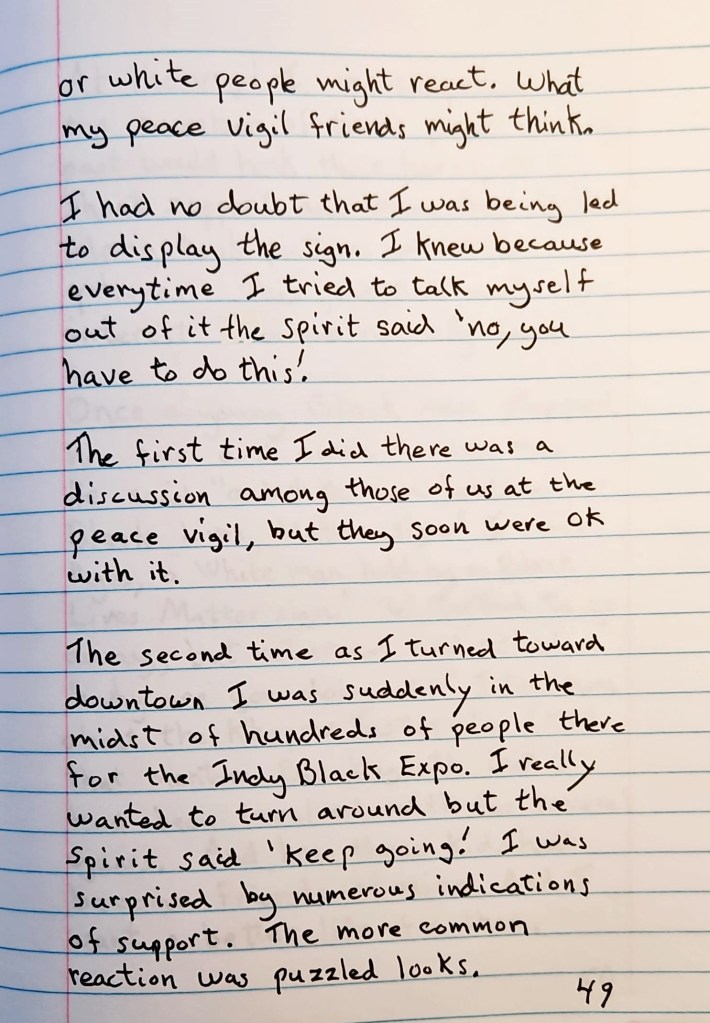 or white people might react. What
my peace vigil friends might think.
I had no doubt that I was being led
to display the sign. I knew because
everytime I tried to talk myself
out of it the spirit said 'no, you
have to do this!'
The first time I did there was a
discussion among those of us at the
peace vigil, but they soon were ok
with it.
The second time as I turned toward
downtown I was suddenly in the
midst of hundreds of people there
for the Indy Black Expo. I really
wanted to turn around but the
Spirit said 'keep going!' I was
surprised by numerous indications
of support. The more common
reaction was puzzled looks.
49